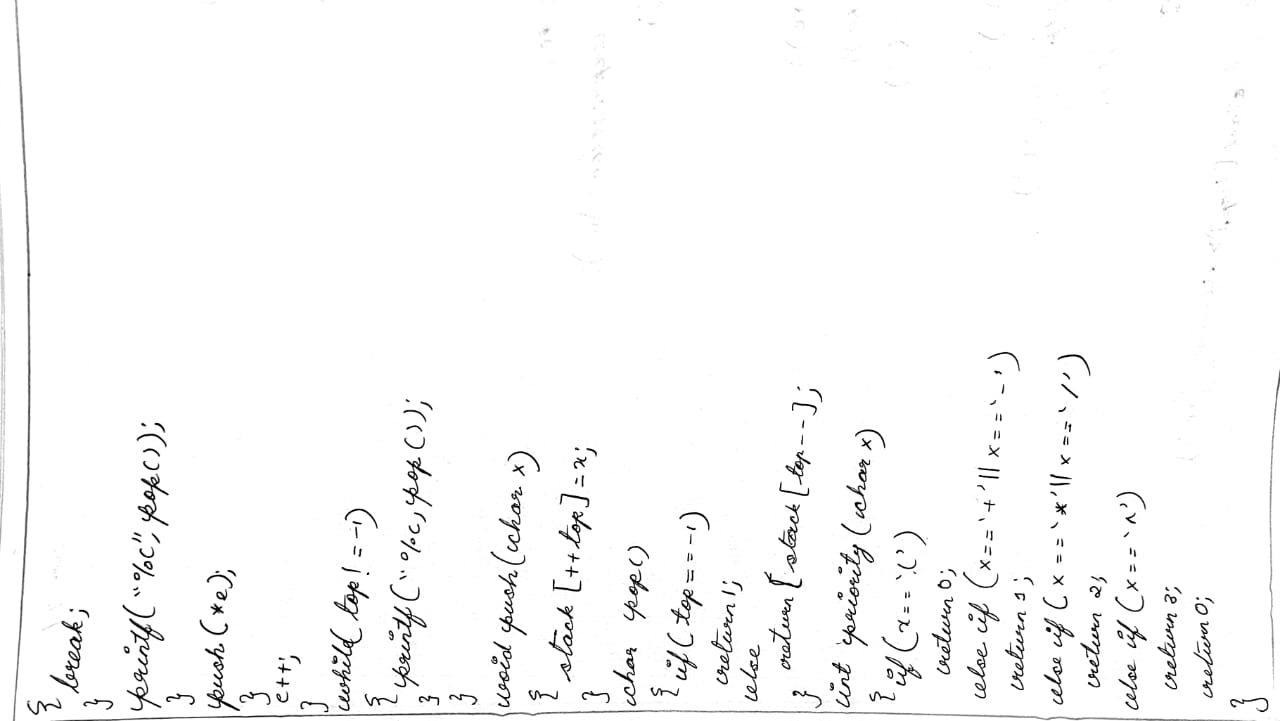 {
break;
}
printf("%c", pop());
}
push(*e);
}
e++;
}
while(top!=-1)
{
printf("%c, pop());
}
}
void push(char x)
{
stack[++top]=x;
}
char pop()
{
if(top==-1)
return 1;
else
return [stack[top--];
}
int priority(char x)
{
if(x=='(')
return 0;
else if(x=='+'||x=='-')
return 1;
else if(x=='*'||x=='/')
return 2;
else if(x=='^')
return 3;
return 0;
}